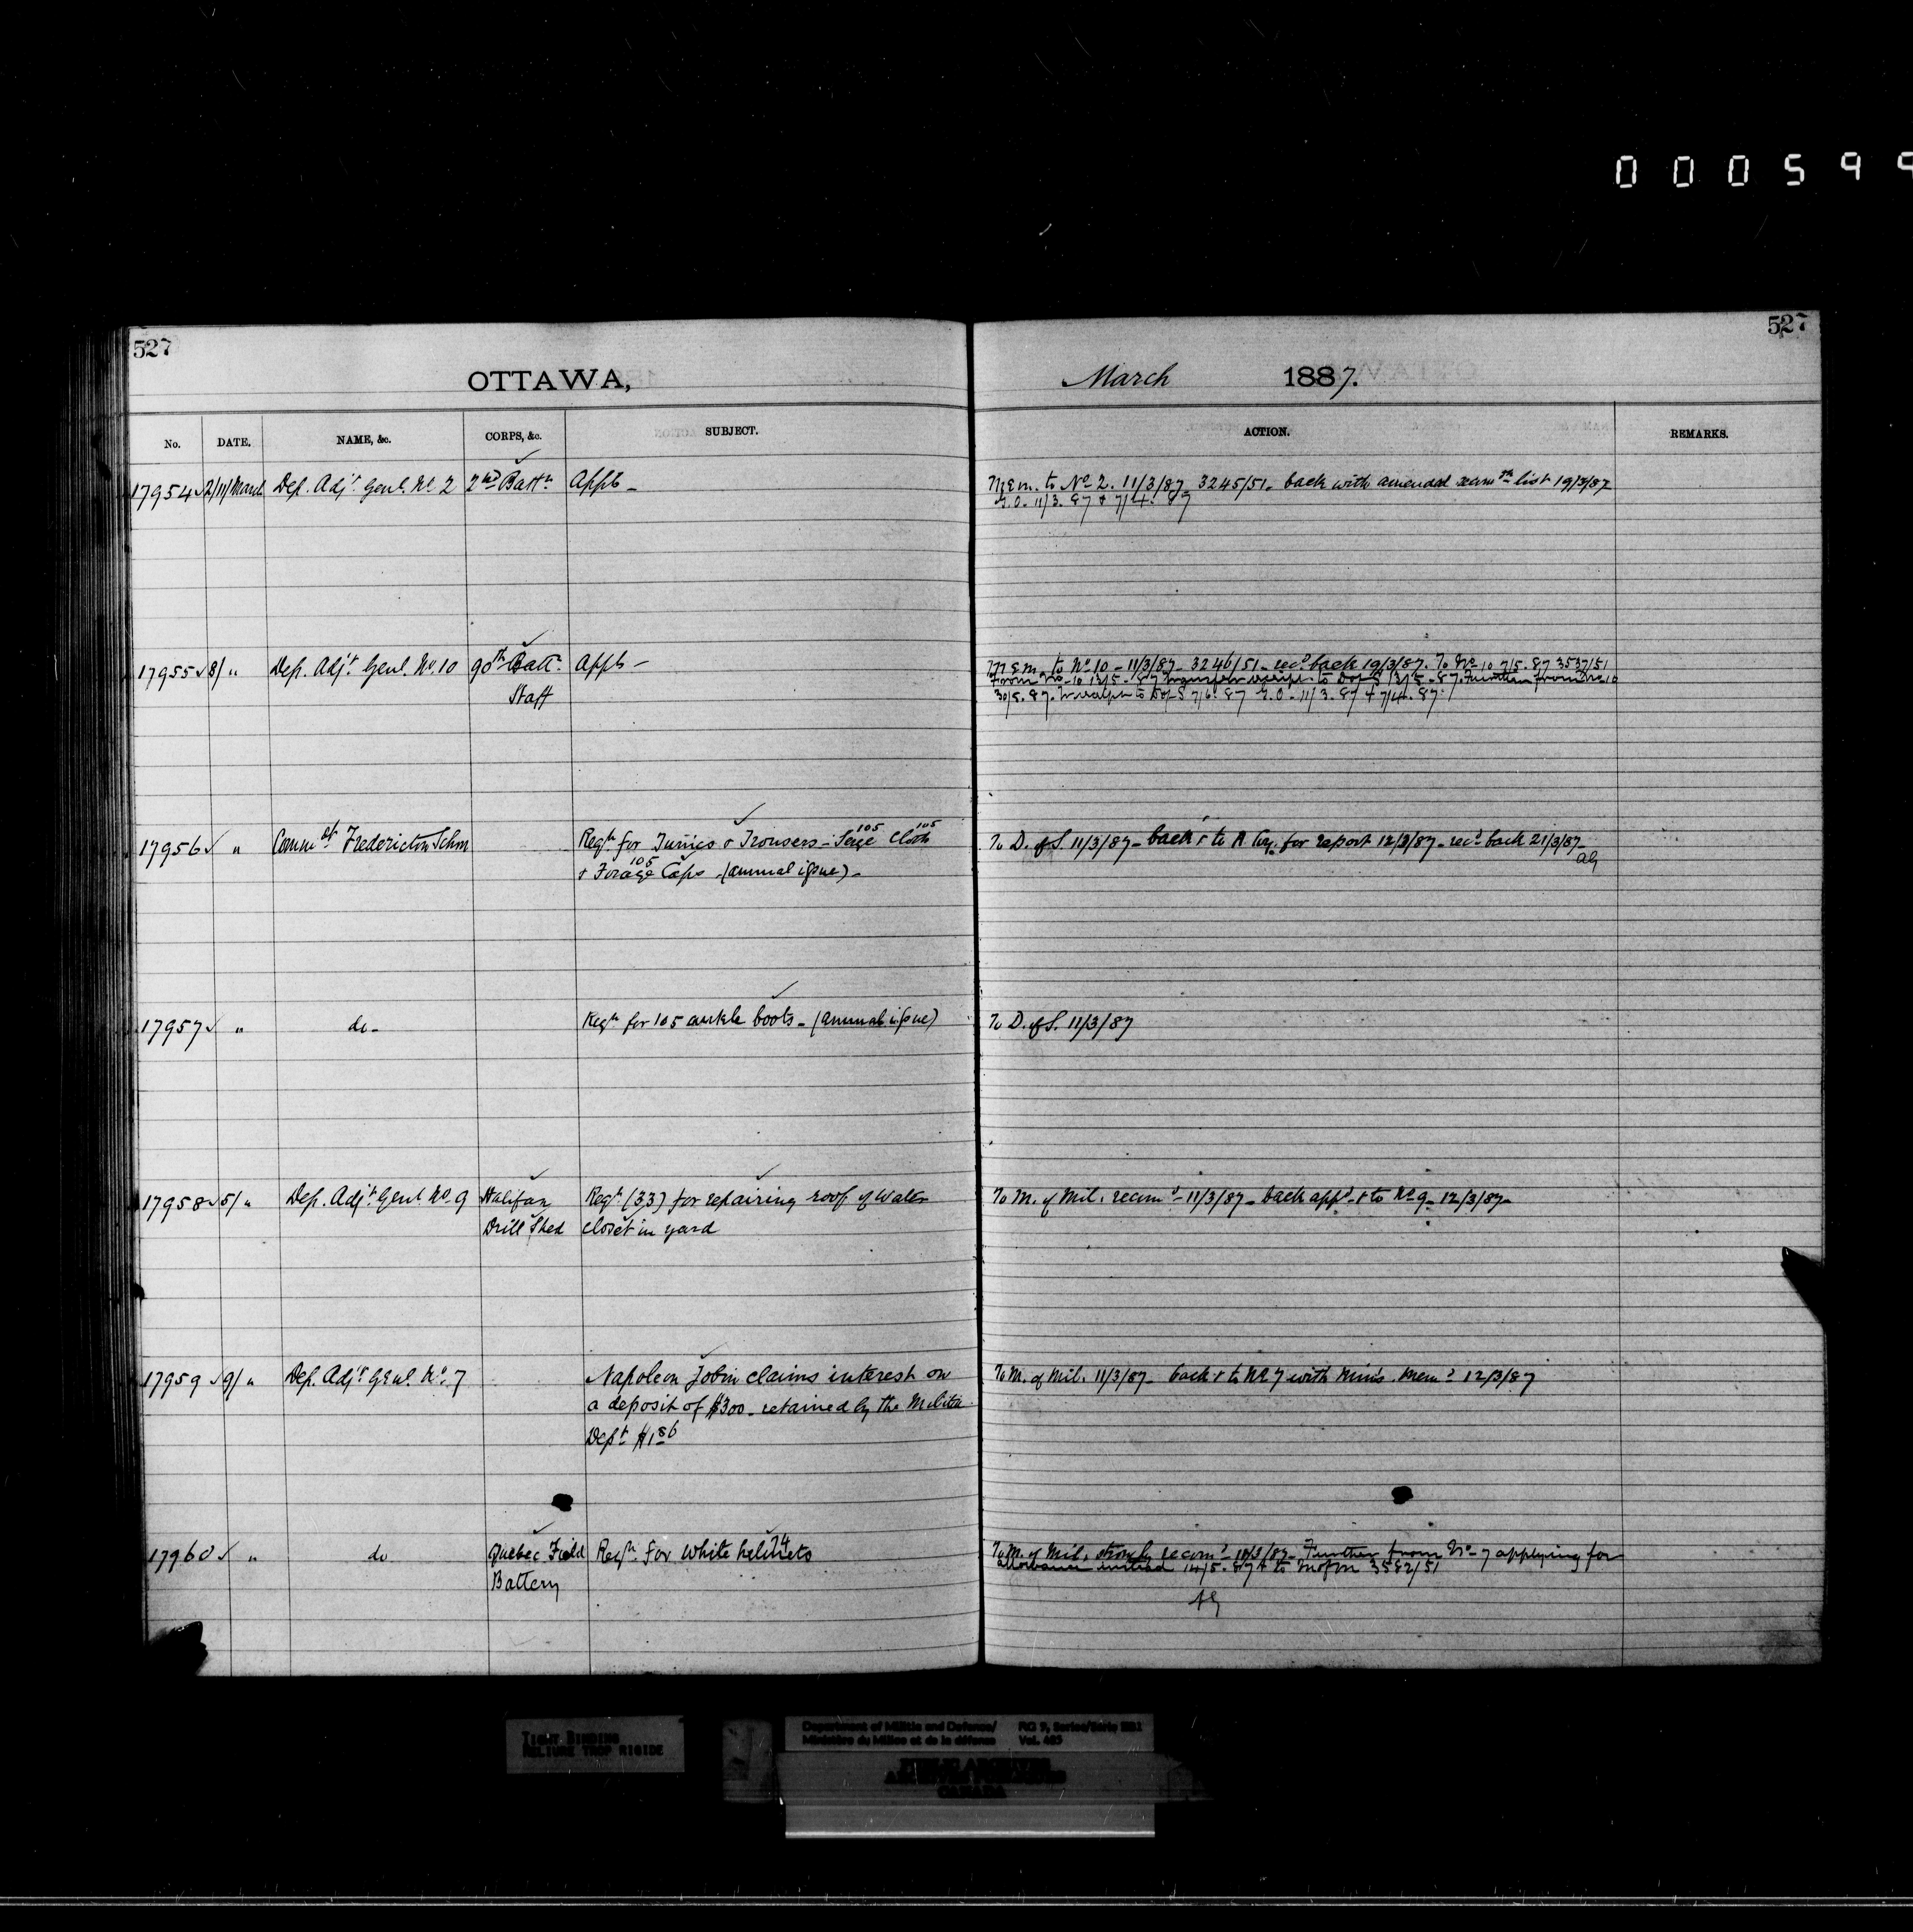 000599
527
527
OTTAWA,
March 1887.
No. DATE. NAME, &c. CORPS, &c. SUBJECT. ACTION. REMARKS.
17954 2/11/March Dep. Adjt. Genl. No. 2 2nd Battn. Appts - Mem. to No 2. 11/3/87. 3245/51. back with amended list 19/3/87
G.O. 11/3.87 & 7/4.87
17955 8/ " Dep. Adjt. Genl. No. 10 90th Batt. Appts - Mem. to No 10 - 11/3/87 - 3246/51 - recd back 19/3/87. To No 10 7/5.87 3537/51
Staff From No 10 13/5.87 transfer receipt to D of S 13/5.87. Further from No 10
30/5.87. to D of S 7/6.87 G.O. 11/3.87 & 7/4.87.
17956 " Commdt Fredericton Schm Reqn for Tunics & Trousers - Serge 105 Cloth 105 To D. of S. 11/3/87 - back & to for report 12/3/87 - recd back 21/3/87 -
& Forage 105 Caps - (annual issue) - AG
17957 " do - Reqn for 105 ankle boots - (annual issue) To D. of S. 11/3/87
17958 5/ " Dep. Adjt Genl No. 9 Halifax Reqn. (33) for repairing roof of water To M. of Mil. recomd - 11/3/87 - back appd - & to No 9 - 12/3/87 -
Drill Shed closet in yard
17959 9/ " Dep. Adjt Genl. No. 7 Napoleon Jobin claims interest on To M. of Mil. 11/3/87 - back & to No 7 with Mins. memo 12/3/87
a deposit of $300 - retained by the Militia
Dept $1.86
17960 " do Quebec Field Reqn. for White helmets 74 To M. of Mil. strongly recomd - 10/3/87 - Further from No - 7 applying for
Battery allowance instead 14/5.87 & to M of M 3582/51
AG
TIGHT BINDING
RELIURE TROP RIGIDE
Department of Militia and Defence/ RG 9, Series/Série IIB1
Ministère du Milice et de la défense Vol. 485
PUBLIC ARCHIVES
ARCHIVES PUBLIQUES
CANADA